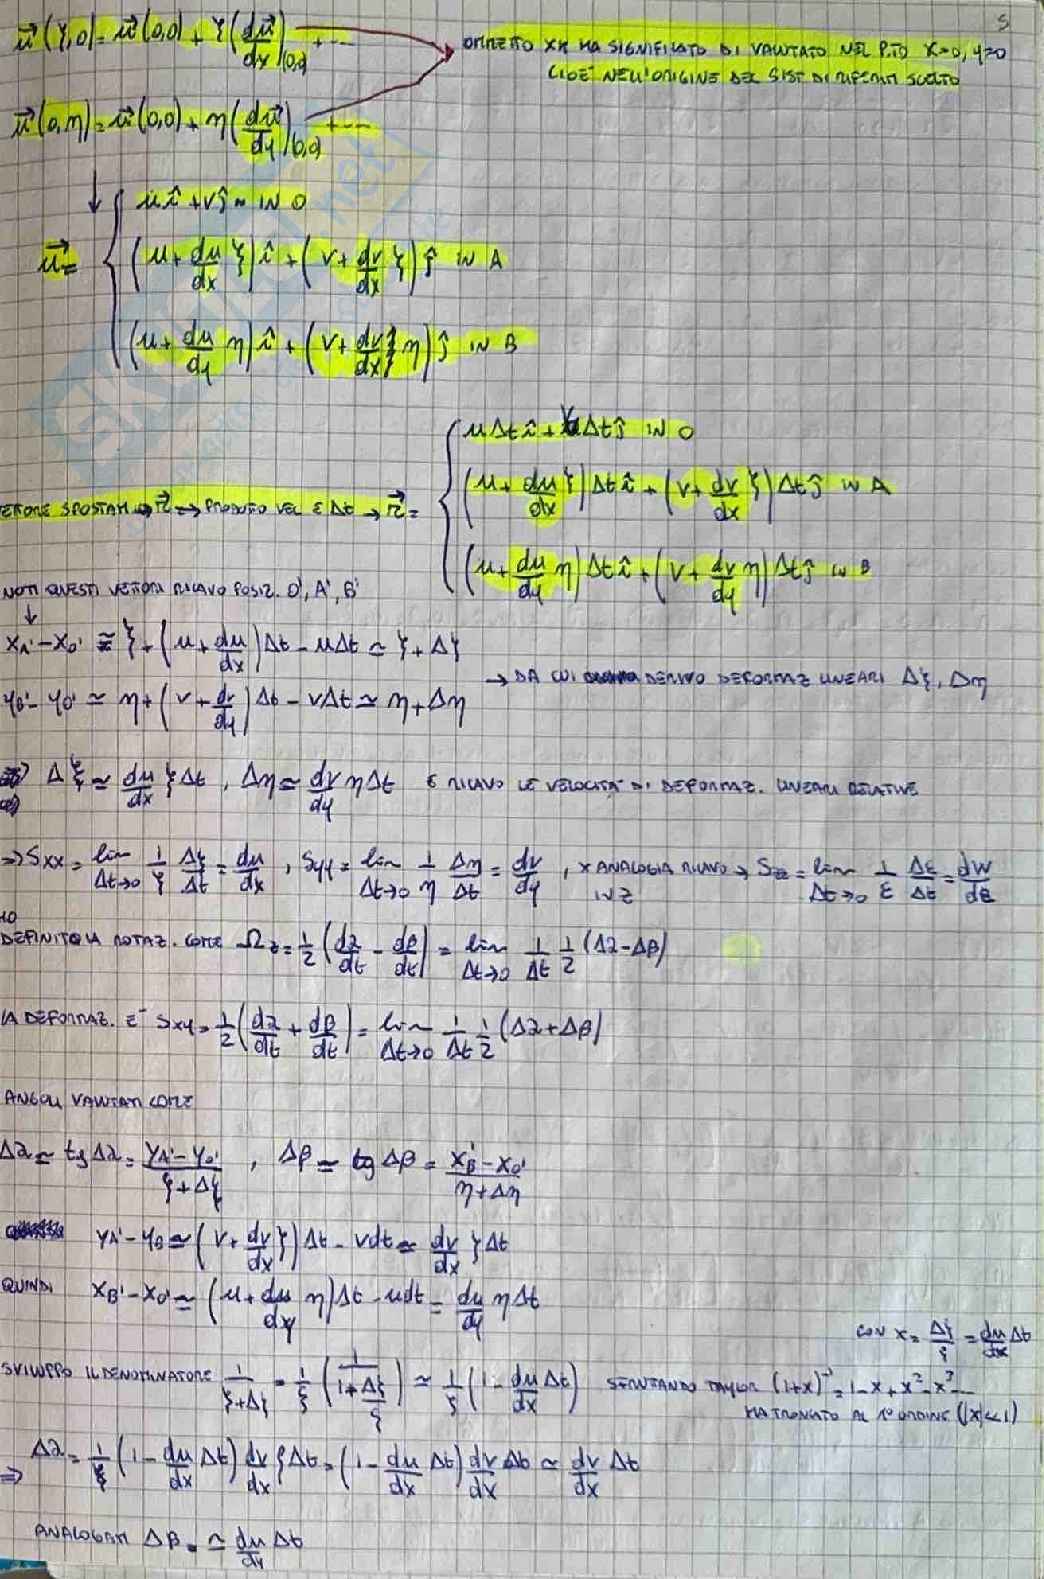 5
u⃗(ξ,0) = u⃗(0,0) + ξ(du⃗/dx)|(0,0) + ...
OMETTO XK HA SIGNIFICATO DI VALUTATO NEL P.TO X=0, y=0
CIOE' NELL'ORIGINE DEL SIST DI RIFERIM SCELTO
u⃗(0,η) = u⃗(0,0) + η(du⃗/dy)|(0,0) + ...
↓ u î + v ĵ ~ IN O
u⃗ = { (u + du/dx ξ) î + (v + dv/dx ξ) ĵ IN A
(u + du/dy η) î + (v + dv/dx η) ĵ IN B
uΔt î + vΔt ĵ IN O
(u + du/dx ξ)Δt î + (v + dv/dx ξ)Δt ĵ IN A
SPOSTAM → r⃗ → PRODOTTO VEL E Δt → r⃗ = {
(u + du/dy η)Δt î + (v + dv/dy η)Δt ĵ IN B
NOTI QUESTI VETTORI RICAVO POSIZ. O', A', B'
↓
XA' - XO' ≅ ξ + (u + du/dx)Δt - uΔt ≃ ξ + Δξ
→ DA CUI DERIVO DEFORMAZ LINEARI Δξ, Δη
yB' - yO' ≃ η + (v + dv/dy)Δt - vΔt ≃ η + Δη
⇒ Δξ ≃ du/dx ξΔt , Δη ≃ dv/dy ηΔt E RICAVO LE VELOCITA' DI DEFORMAZ. LINEARI RELATIVE
⇒ Sxx = lim Δt→0 1/ξ Δξ/Δt = du/dx , Syy = lim Δt→0 1/η Δη/Δt = dv/dy , X ANALOGIA RICAVO → Szz = lim Δt→0 1/ε Δε/Δt = dw/dz
IN Z
DEFINITO LA ROTAZ. COME Ωz = 1/2 (dα/dt - dβ/dt) = lim Δt→0 1/Δt 1/2 (Δα - Δβ)
LA DEFORMAZ. E' Sxy = 1/2 (dα/dt + dβ/dt) = lim Δt→0 1/Δt 1/2 (Δα + Δβ)
ANGOLI VALUTATI COME
Δα ≃ tg Δα = (yA' - yO')/(ξ + Δξ) , Δβ ≃ tg Δβ = (xB' - xO')/(η + Δη)
yA' - yO ≃ (v + dv/dx ξ)Δt - vdt ≃ dv/dx ξΔt
QUINDI xB' - xO' ≃ (u + du/dy η)Δt - udt = du/dy ηΔt
CON x = Δξ/ξ = du/dx Δt
SVILUPPO IL DENOMINATORE 1/(ξ+Δξ) = 1/ξ (1/(1+Δξ/ξ)) ≃ 1/ξ (1 - du/dx Δt) SFRUTTANDO TAYLOR (1+x)⁻¹ = 1 - x + x² - x³ ...
MA TRONCATO AL 1° ORDINE (|x|<<1)
⇒ Δα = 1/ξ (1 - du/dx Δt) dv/dx ξΔt = (1 - du/dx Δt) dv/dx Δt ≃ dv/dx Δt
ANALOGAM Δβ ≃ du/dy Δt